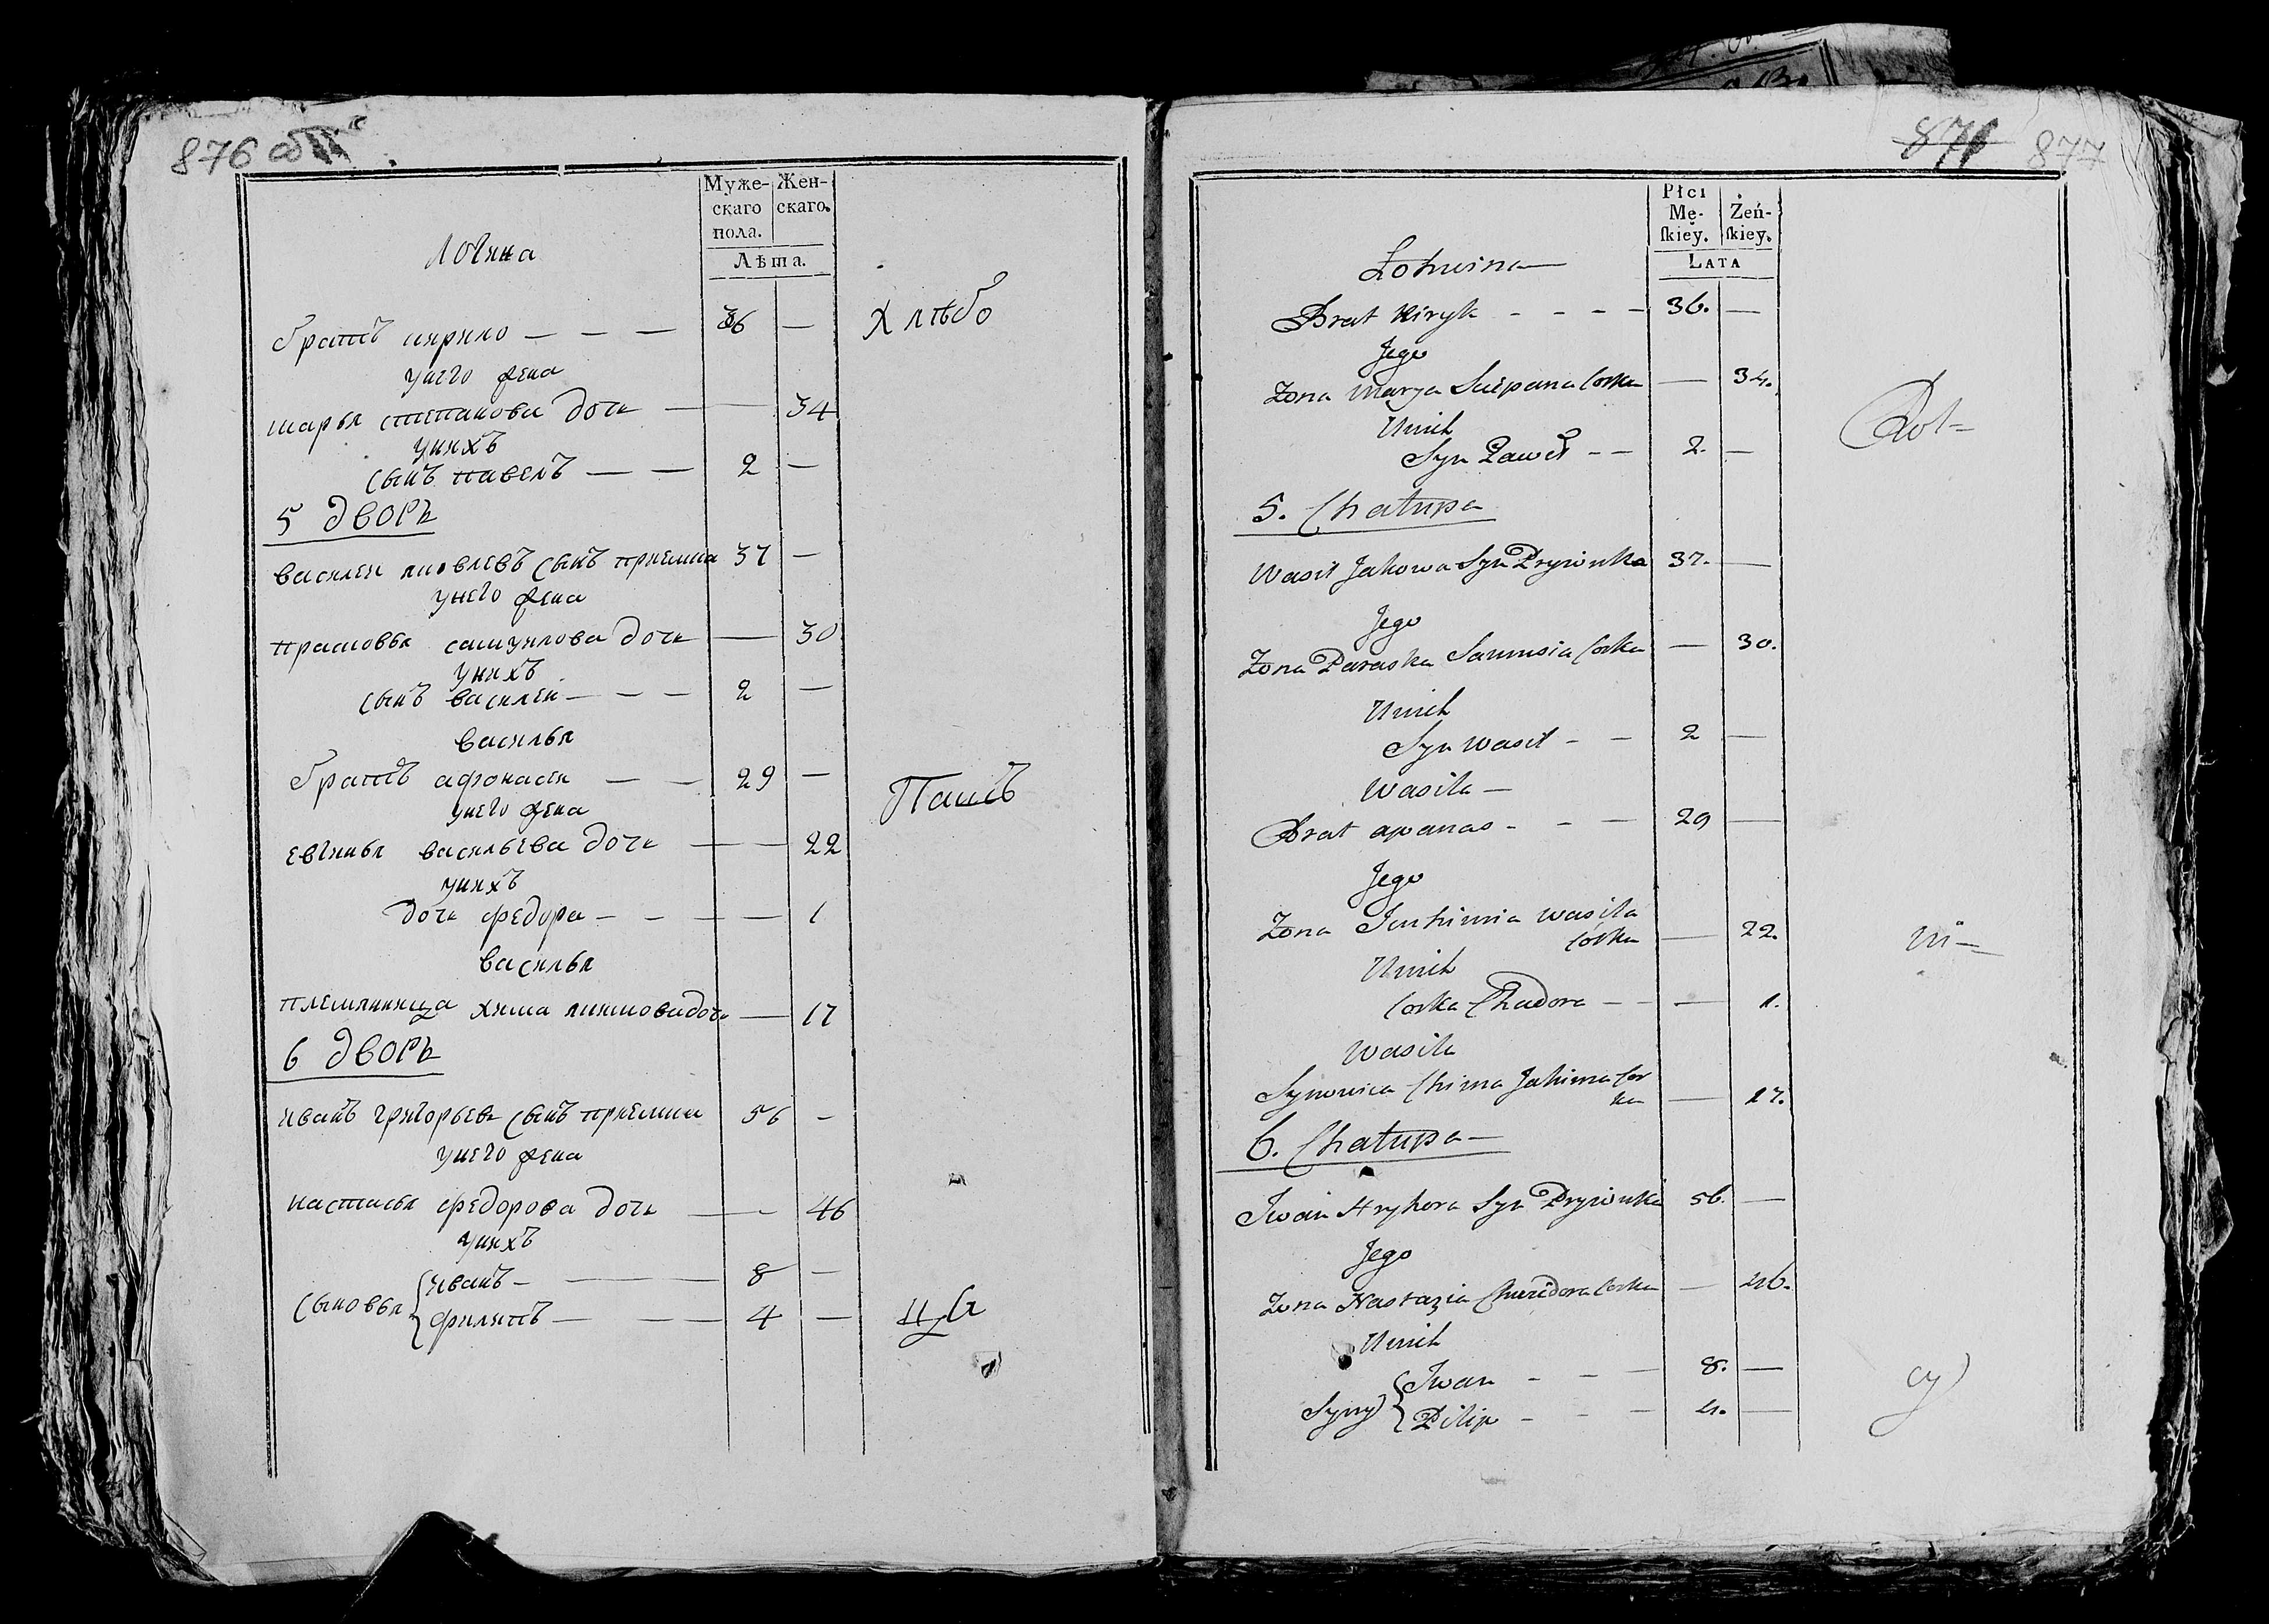 876 об
Муже-
скаго
пола.
Жен-
скаго.
Лѣта.
Логина
братъ кирило — — — 36 —
унего жена
марья степанова дочь — 34
унихъ
сынъ павелъ — — 2 —
5 дворъ
василеи яковлевъ сынъ приемша 37 —
унего жена
прасковья самуилова дочь — 30
унихъ
сынъ василеи — — — 2 —
василья
братъ афонасеи — — 29 —
унего жена
евгинья васильева дочь — — 22
унихъ
дочь федора — — — — 1
василья
племянница хима якимова дочь — 17
6 дворъ
иванъ григорьевъ сынъ приемши 56 —
унего жена
настасья федорова дочь — — 46
унихъ
сыновья { иванъ — — 8 —
филипъ — — — 4 —
Хлѣбо
Пашъ
цы
877
Płci
Mę-
skiey.
Żeń-
skiey.
Lata
Łohwina —
Brat Kiryk - - - - 36. —
Jego
Zona Marya Sciepana Corka — 34.
Unich
Syn Paweł - - 2. —
5. Chatupa
Wasil Jakowa Syn Pryiomka 37. —
Jego
Zona Paraska Samusia Corka — 30.
Unich
Syn Wasil - - 2 —
Wasila —
Brat apanas - - — 29 —
Jego
Zona Jeuhinia Wasila
Corka — 22.
Unich
Corka Chadora - - — 1.
Wasila
Synowica Chima Jakima Cor
ka — 17.
6. Chatupa —
Iwan Hryhora Syn Pryiomka 56. —
Jego
Zona Nastazia Chwiedora Corka — 46.
Unich
Syny { Iwan - - — 8. —
Pilip - - — 4. —
Rol-
ni—
cy